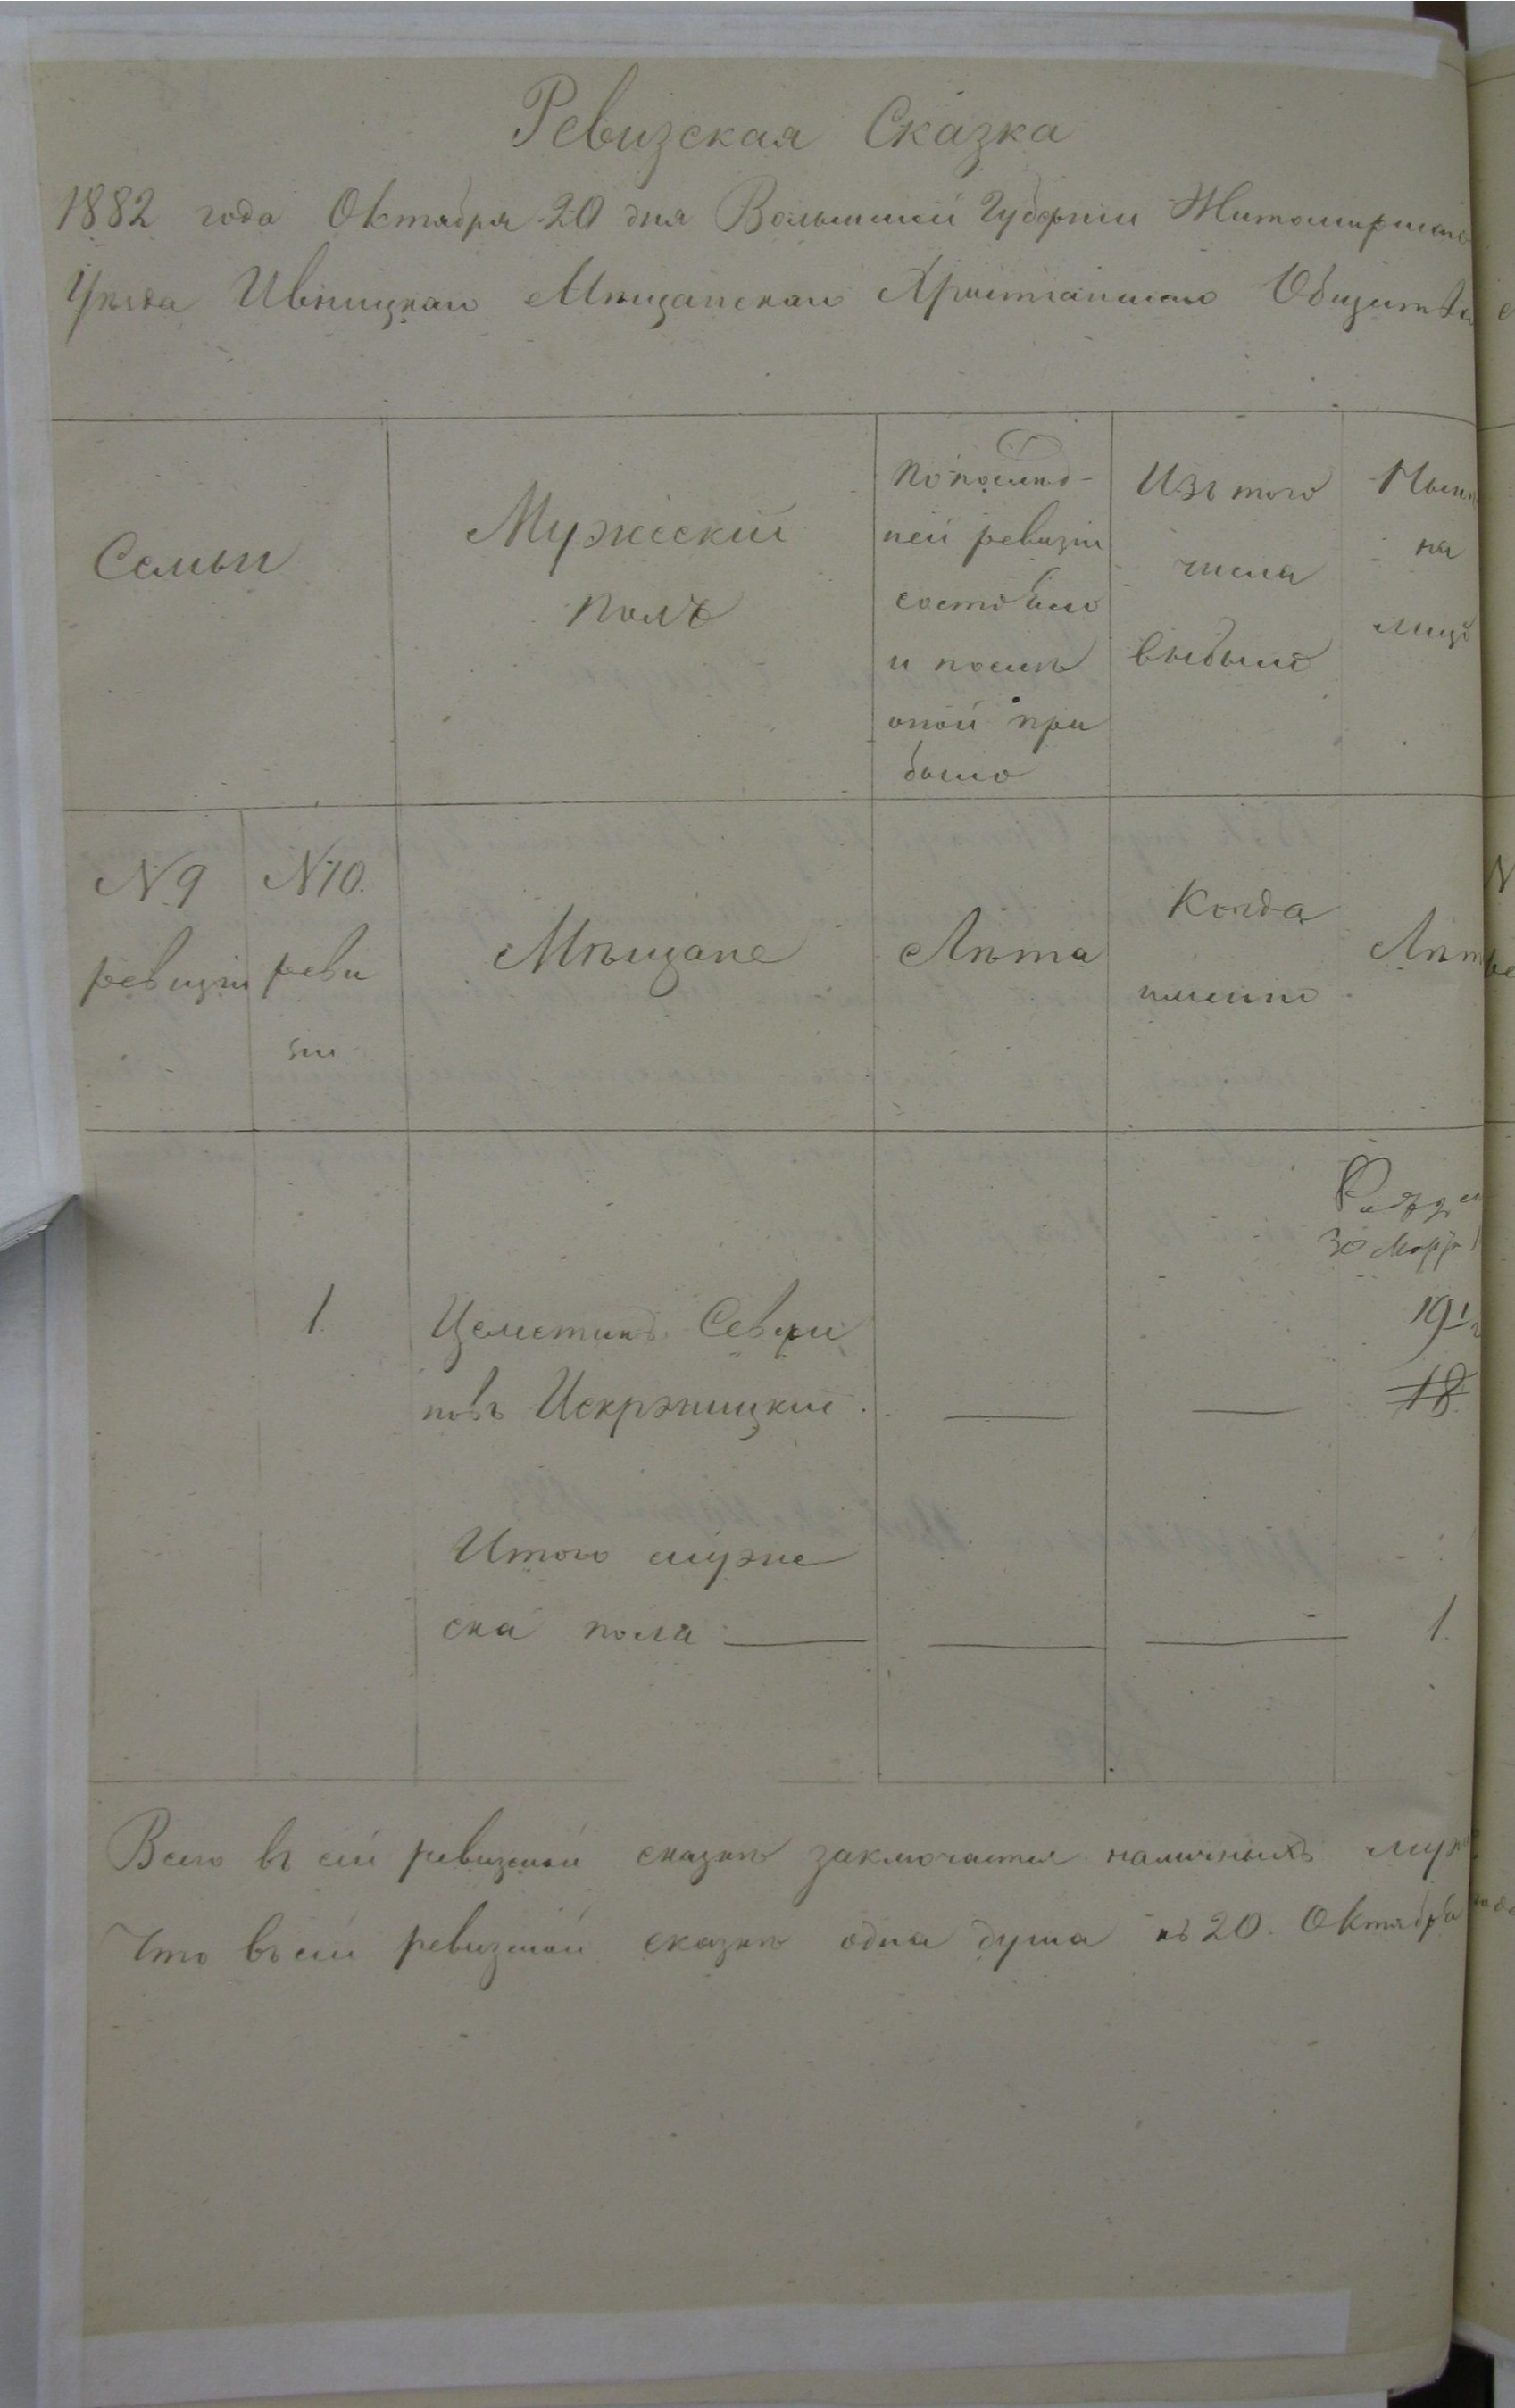 Ревизская Сказка
1882 года Октября 20 дня Волынской Губерніи Житомирскаго
Уѣзда Ивницкаго Мѣщанскаго Христіанскаго Общества
Семьи
Мужескій
полъ
По послѣд-
ней ревизіи
состояло
и послѣ
оной при
было
Изъ того
числа
выбыло
Нынѣ
на
лицо
N 9
ревизіи
N 10.
реви
зіи
Мѣщане
Лѣта
Когда
именно
Лѣт
30 Мар
1.
Целестинъ Севери
новъ Искржицкій
19 1/2
18
Итого муже
ска пола
1.
Всего въ сей ревизской сказкѣ заключается наличныхъ муж
Что въ сей ревизской сказкѣ одна душа къ 20. Октября